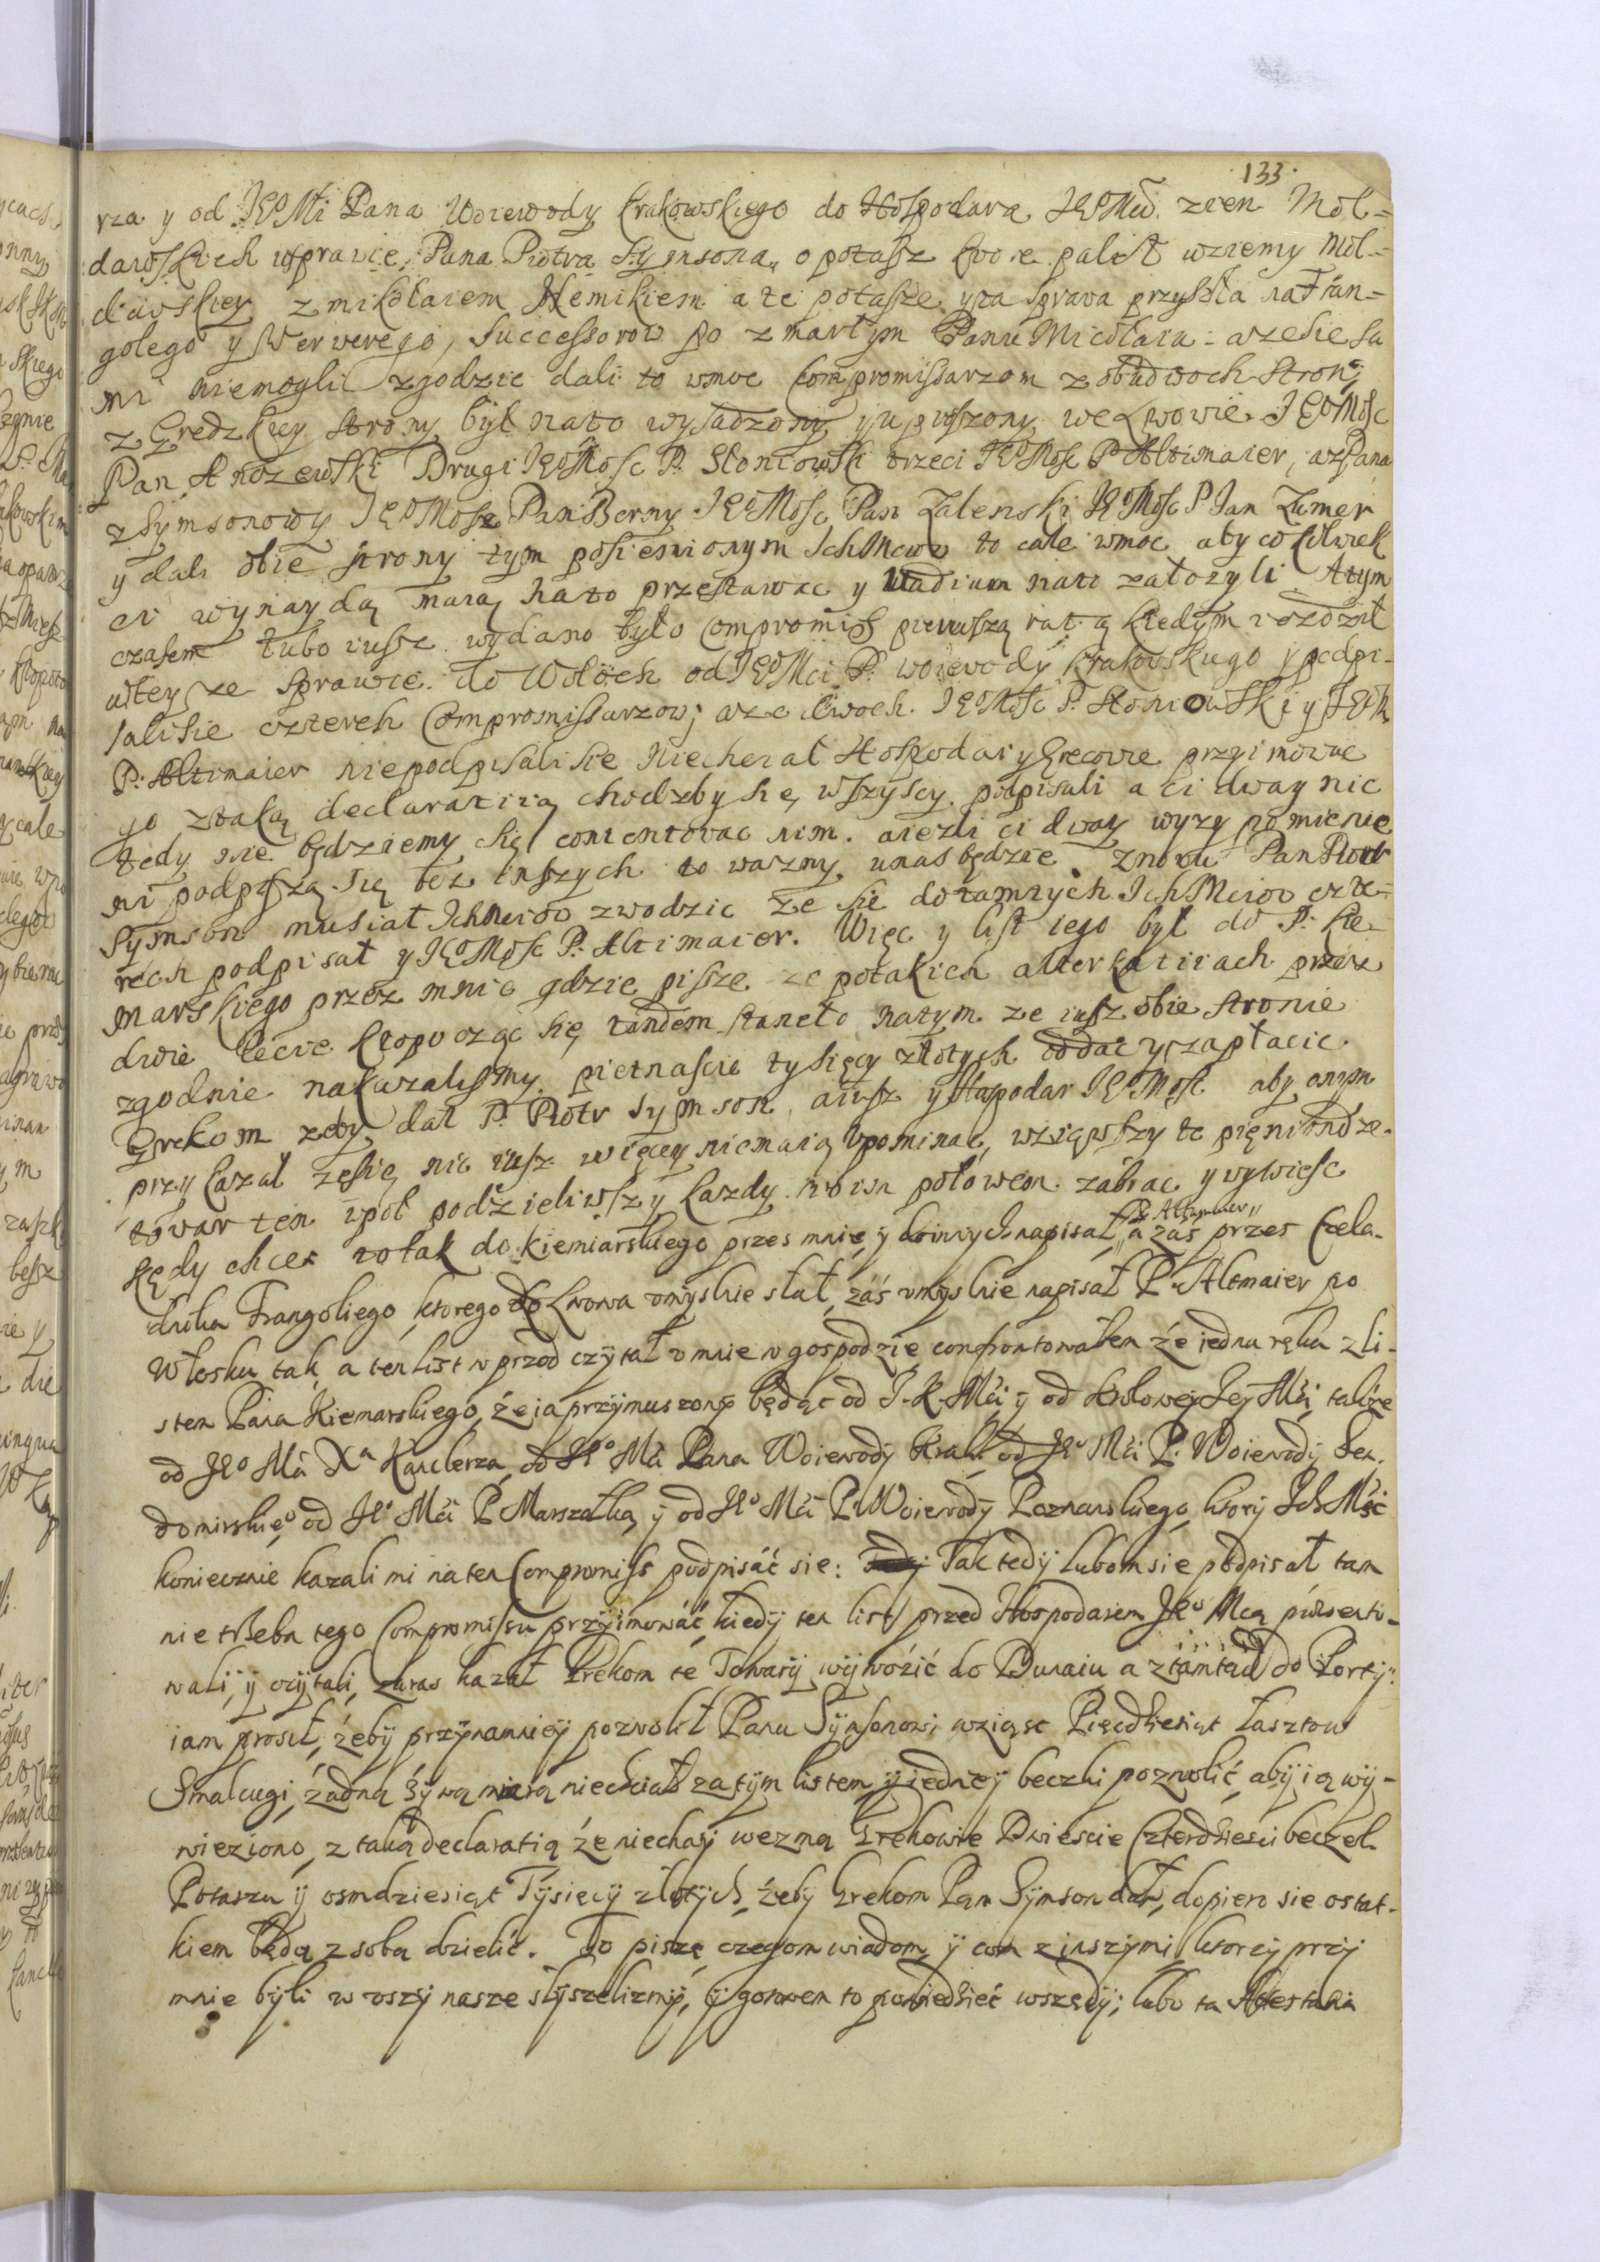 133.
rza y od JEoMći Pana Woiewody Krakowskiego do Hospodara JEoMći zien Mol=
dawskich wsprawie Pana Piotra Symsona, o potasze ktore palił wziemy Mol=
dawskiey z mikołaiem Nemikiem a te potasze yta sprawa przyszła na Fran=
golego y Werwerego, Successorow po zmarłym Panu Micołaiu: a ze sie sa
mi niemogli zgodzic dali to wmoc Compromissarzom z obudwoch stron,
z Gredzkiey strony był nato wysadzony y upuszony we Lwowie JEoMosc
Pan Anozewski Drugi JEoMosc P. Słoniowski trzeci JEoMosc P Altimaier, a z Pana
z Symsonowy JEoMosc Pan Berny JEoMosc Pan Zalenski JEoMosc P Jan Zumer
y dali obie strony tym pomienionym IchMciow to cale wmoc aby cokolwiek
ci wynaydą maią nato przestawac y Vadium nato założyli Atym
czasem lubo iusz wydano było Compromiss pierwszą ratą kiedym iezdził
wtey ze sprawie do Włoch od JEoMci P. woiewody Krakowskiego y podpi-
sali sie czterech Compromissarzow, a ze dwoch JEoMosc P. Słoniowski y JEoM
P. Altimaier niepodpisali sie Niechciał Hospodar y Grecowie przyimowac
go ztaką declaratią chodzby się wszyscy podpisali a ci dway nie
tedy nie będziemy się contentowac nim. a iezli ci dway wyzy pomienie
ni podpiszą się bez inszych to wazny unas będzie. Znowu Pan Piotr
Symson musiał IchMciow zwodzic ze sie dotamtych IchMciow czte=
rech podpisał y JEoMosc P. Altimaier. Więc y list iego był do P. Kie-
marskiego przez mnie gdzie pisze ze potakich alterkatiiach przez
dwie lecie kłopocząc się tandem staneło natym ze iusz obie stronie
zgodnie nakazalismy pietnascie tysięcy złotych oddac y zapłacic
Grekom zeby dał P. Piotr Symson, a iusz y Hospodar JEoMosc aby onym
przykazał zesię nic iusz więcey niemaią vpominac, wziąwszy te pięniondze.
towar ten wpoł podzieliwszy kazdy swoia połowem zabrac y wywiesc
kędy chce: to tak do kiemiarskiego przes mnie y do innych napisał P Altymaier, a zaś przes Czela-
dnika Frangoliego, ktorego do Lwowa umyslnie słał, zaś umyslnie napisał P. Altmaier po
Włosku tak, a ten list wprzod czytał u mnie w gospodzie confrontowałem że iedna ręka z li-
stem Pana Kiemarskiego, że ia przymuszony będąc od J. K. Mći y od Krolowej Jey Mći, także
od JEo Mći Xa Kanclerza, od JEo Mći Pana Woiewody Krak: od JEo Mći P. Woiewody Sen.
domirskieo, od JEo Mći P. Marszałka, y od JEo Mći P. Woiewody Poznanskiego, ktorzy Ich Mść
koniecznie kazali mi na ten Compromiss podpisáć sie: Tak tedy lubom sie podpisał tam
nie trzeba tego Compromissu przyimowáć, kiedy ten list przed Hospodarem JEo Mcią prezento-
wali, y czytali, zaraz kazał Grekom te Towary wywozić do Dunaiu a ztamtąd do Porty:
iam prosił, żeby przynamniey pozwolił Panu Symsonowi wziąsc Pięcdziesiąt łasztow
Smalcugi, żadną żywą miarą niechciał za tym listem y iedney beczki pozwolić, aby ią wy-
wieziono, z taką declaratią że niechay wezmą Grekowie Dwiescie Czterdziesci beczek
Potaszu y osmdziesiąt Tysięcy złotych, żeby Grekom Pan Symson dał, dopiero sie ostat-
kiem będą z sobą dzielić. To piszę czegom wiadom, y com z inszymi ktorzy przy
mnie byli w uszy nasze słyszelizmy, y gotowem to powiedzieć wszędy; lubo ta Attestatia